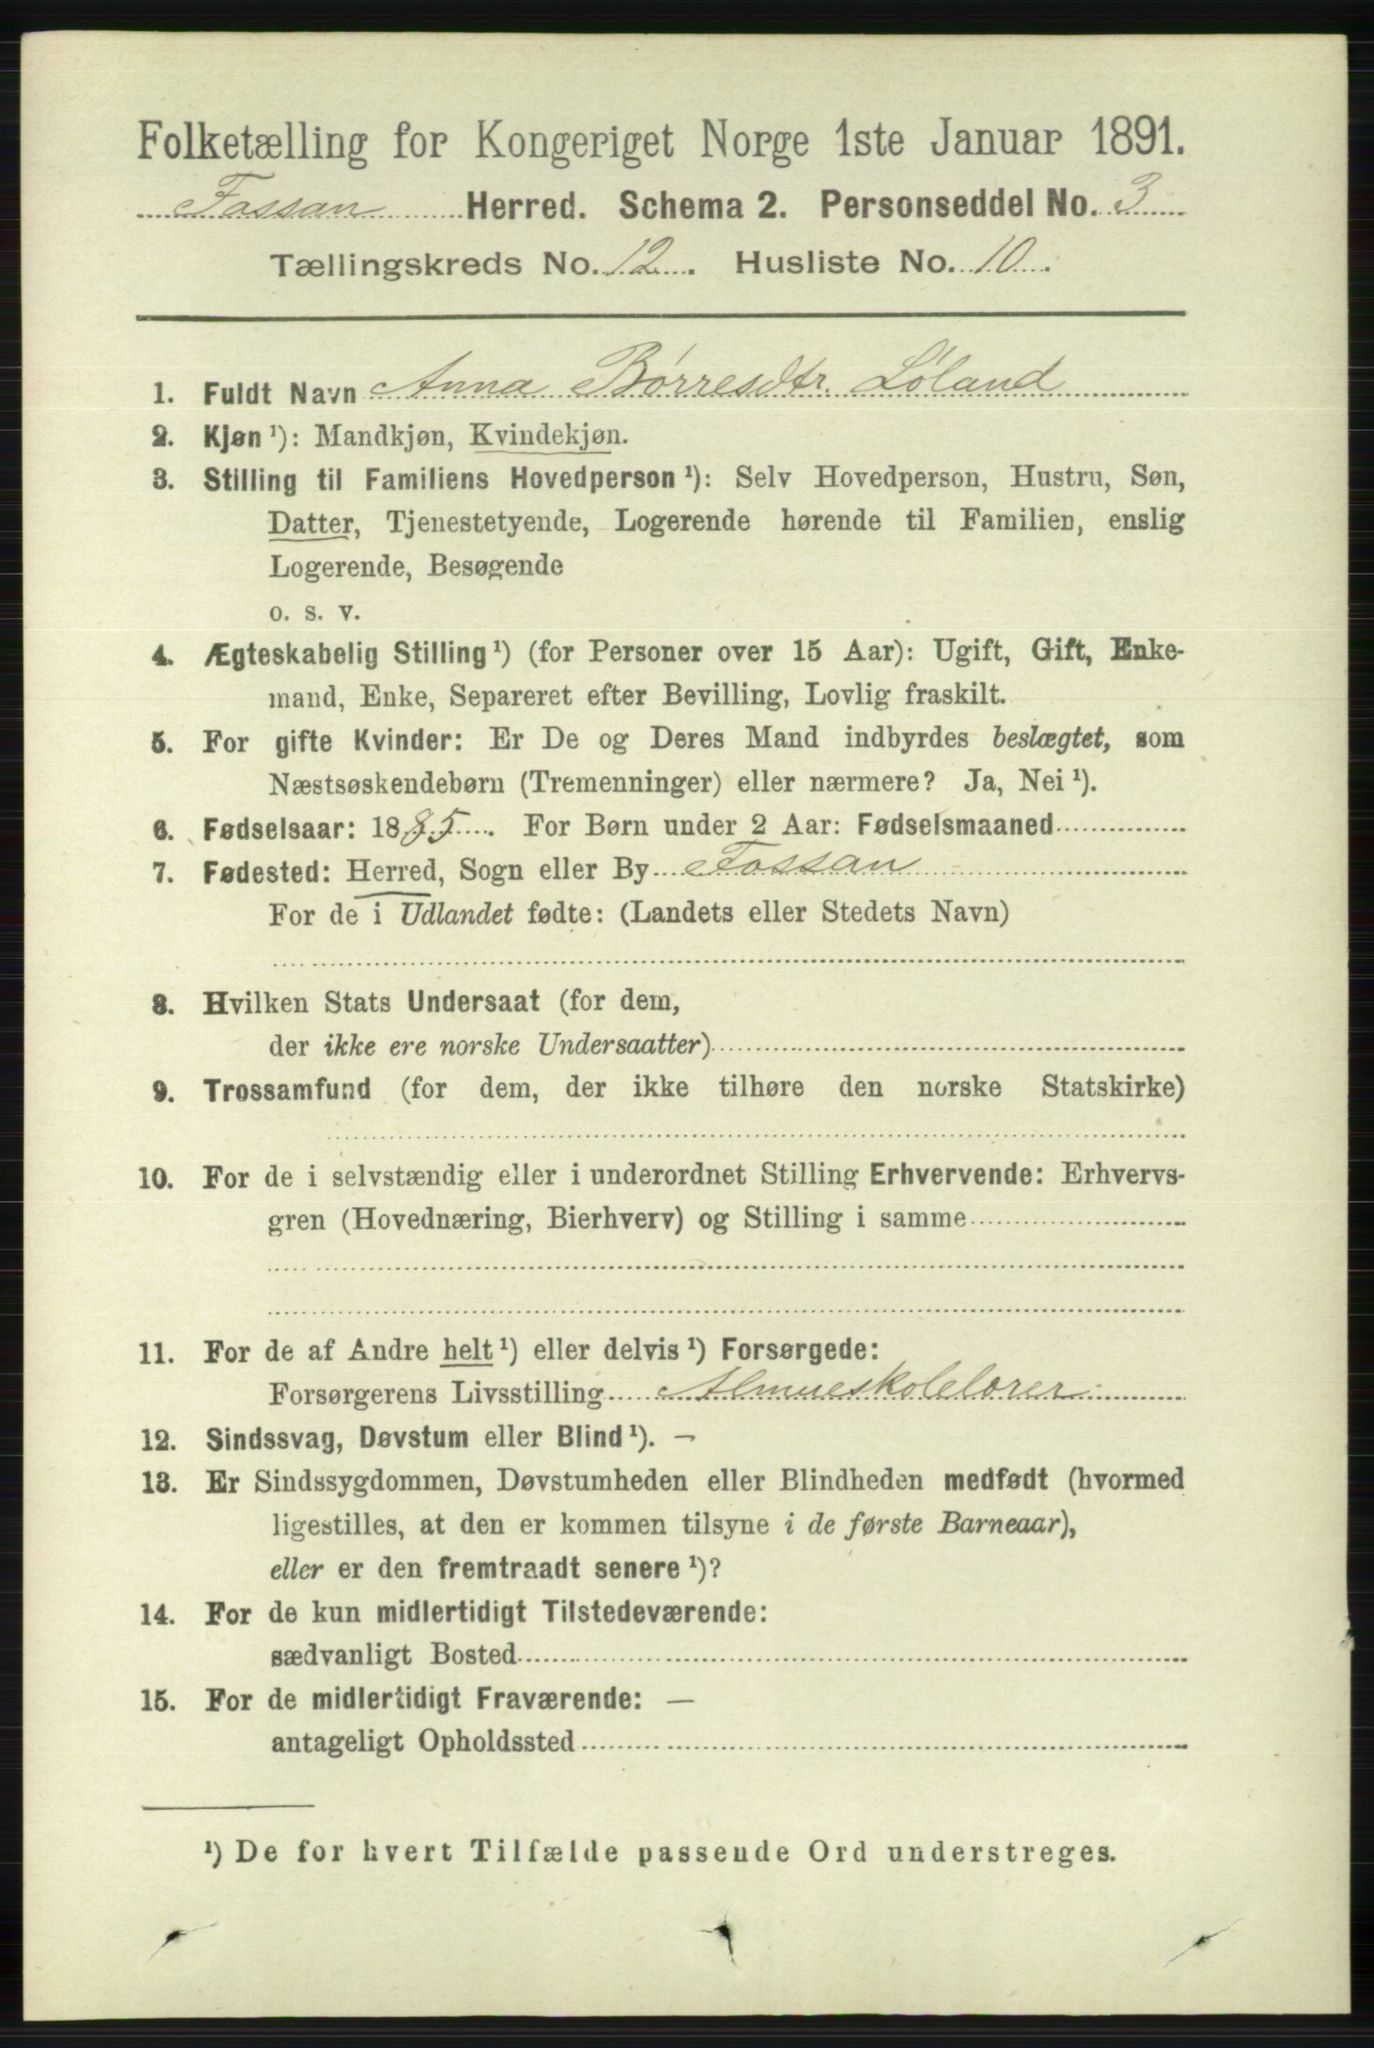 Folketælling for Kongeriget Norge 1ste Januar 1891.
Fossan Herred. Schema 2. Personseddel No. 3
Tællingskreds No. 12. Husliste No. 10.
1. Fuldt Navn Anna Børresdtr. Löland
2. Kjøn ¹): Mandkjøn, Kvindekjøn.
3. Stilling til Familiens Hovedperson ¹): Selv Hovedperson, Hustru, Søn,
Datter, Tjenestetyende, Logerende hørende til Familien, enslig
Logerende, Besøgende
o. s. v.
4. Ægteskabelig Stilling ¹) (for Personer over 15 Aar): Ugift, Gift, Enke-
mand, Enke, Separeret efter Bevilling, Lovlig fraskilt.
5. For gifte Kvinder: Er De og Deres Mand indbyrdes beslægtet, som
Næstsøskendebørn (Tremenninger) eller nærmere? Ja, Nei ¹).
6. Fødselsaar: 1885. For Børn under 2 Aar: Fødselsmaaned
7. Fødested: Herred, Sogn eller By Fossan
For de i Udlandet fødte: (Landets eller Stedets Navn)
8. Hvilken Stats Undersaat (for dem,
der ikke ere norske Undersaatter)
9. Trossamfund (for dem, der ikke tilhøre den norske Statskirke)
10. For de i selvstændig eller i underordnet Stilling Erhvervende: Erhvervs-
gren (Hovednæring, Bierhverv) og Stilling i samme
11. For de af Andre helt ¹) eller delvis ¹) Forsørgede:
Forsørgerens Livsstilling Almueskolelærer
12. Sindssvag, Døvstum eller Blind ¹). –
13. Er Sindssygdommen, Døvstumheden eller Blindheden medfødt (hvormed
ligestilles, at den er kommen tilsyne i de første Barneaar),
eller er den fremtraadt senere ¹)?
14. For de kun midlertidigt Tilstedeværende:
sædvanligt Bosted
15. For de midlertidigt Fraværende: —
antageligt Opholdssted
¹) De for hvert Tilfælde passende Ord understreges.